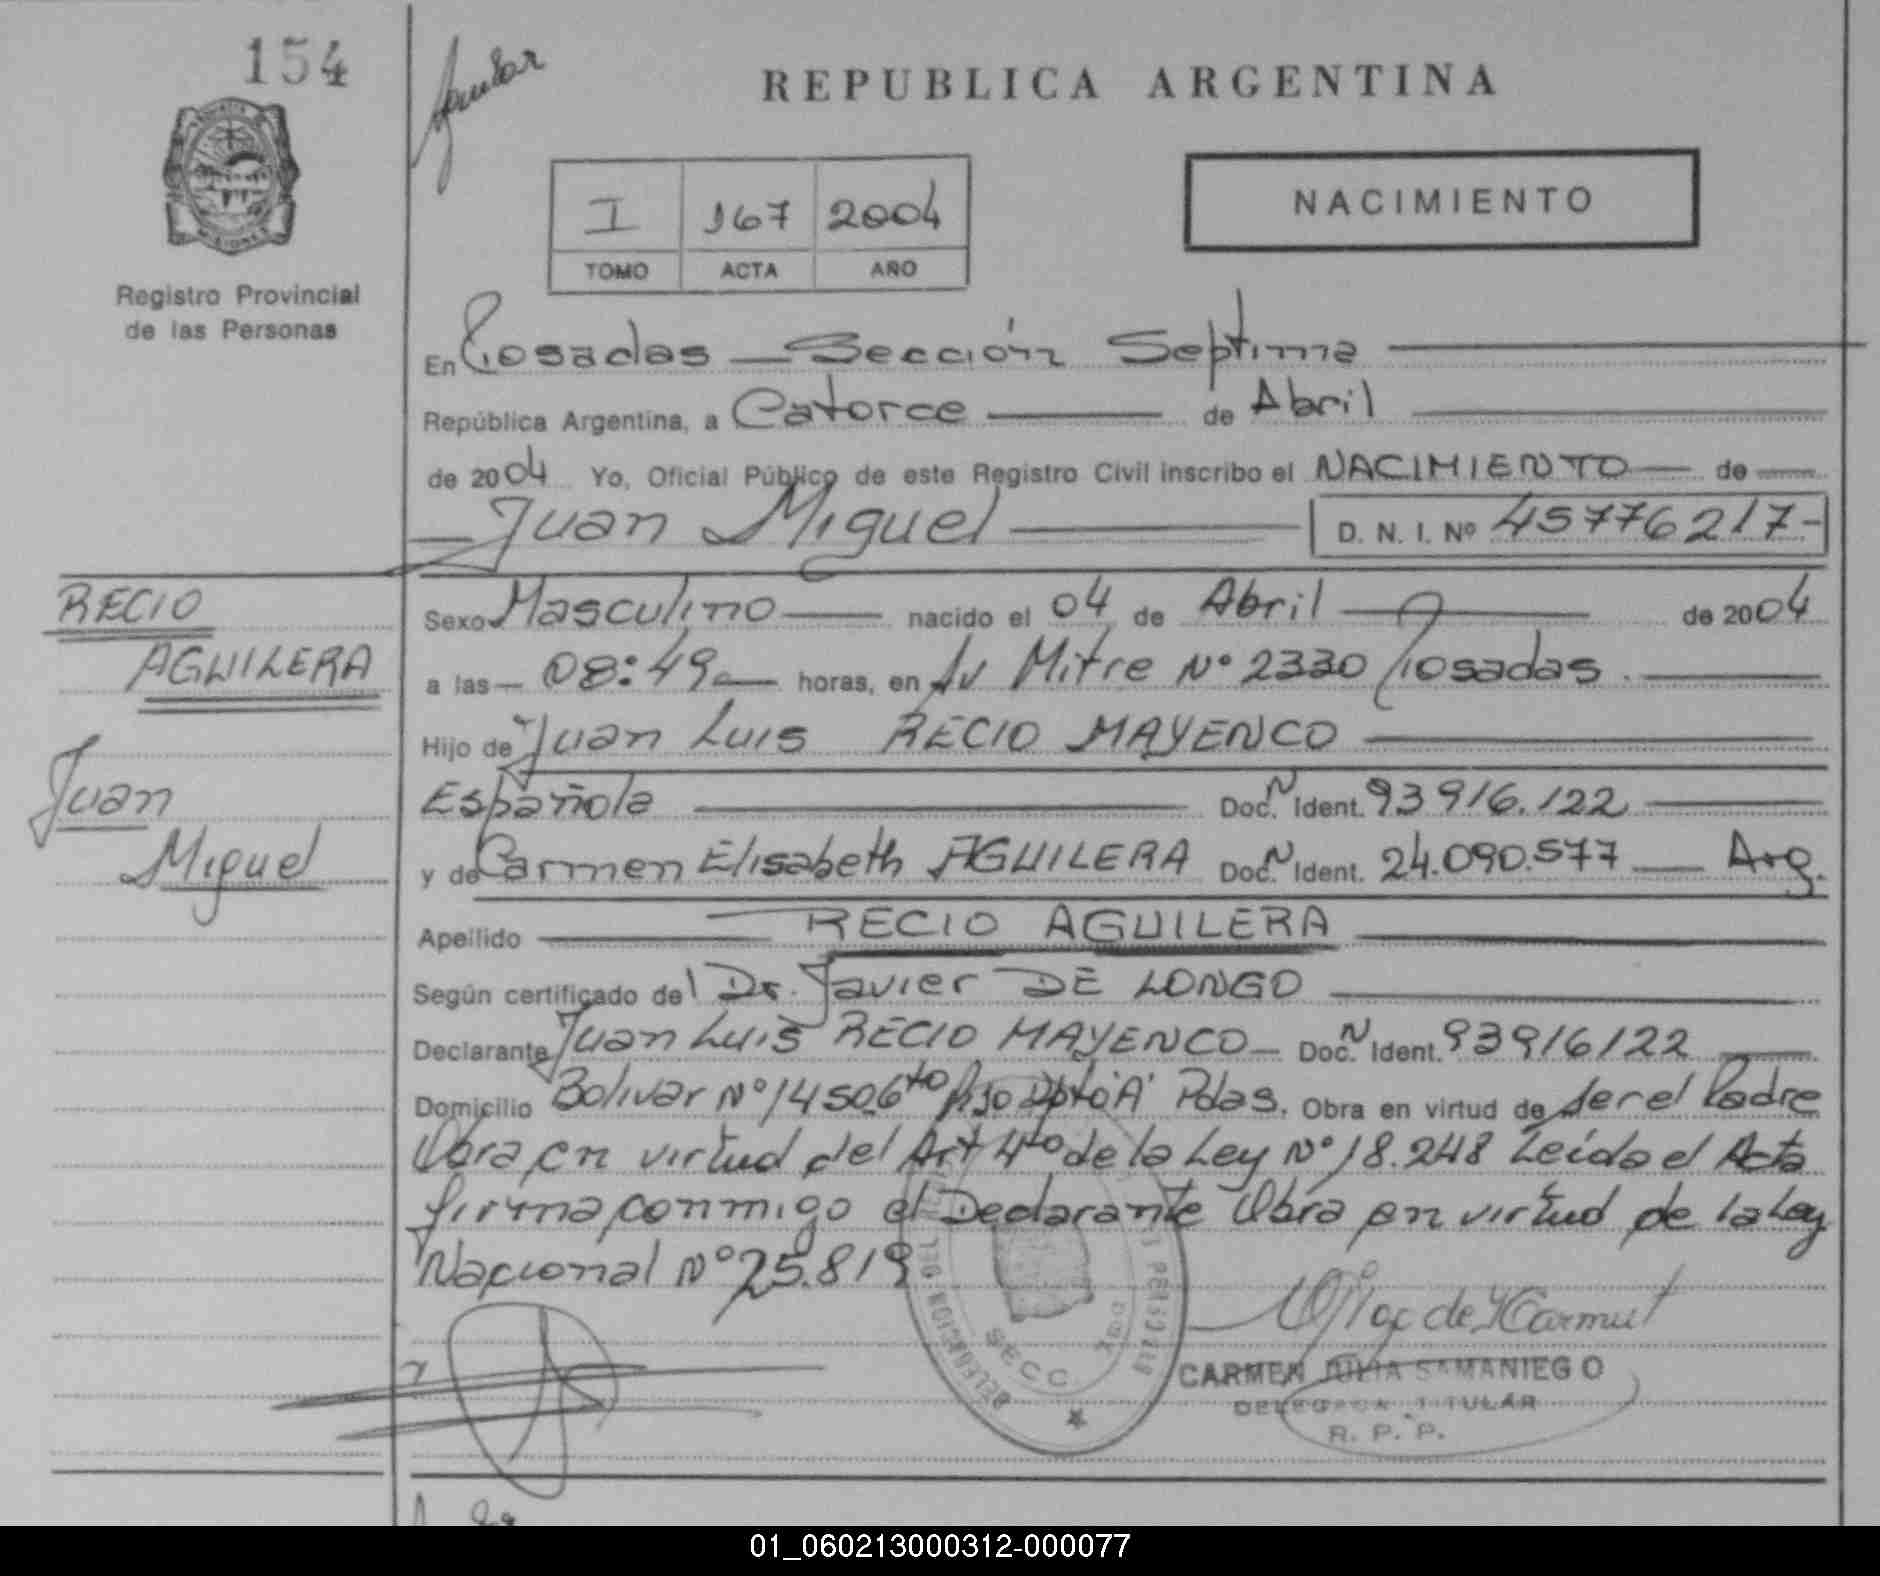 154
REPUBLICA ARGENTINA
I 167 2004
TOMO ACTA AÑO
NACIMIENTO
MISIONES
Registro Provincial
de las Personas
En Posadas — Sección Septima
República Argentina, a Catorce de Abril
de 2004 Yo, Oficial Público de este Registro Civil inscribo el NACIMIENTO de
Juan Miguel D. N. I. Nº 45776217-
RECIO
AGUILERA
Juan
Miguel
Sexo Masculino nacido el 04 de Abril de 2004
a las 08:49 horas, en Av Mitre Nº 2330 Posadas
Hijo de Juan Luis RECIO MAYENCO
Española Doc. N Ident. 93916.122
y de Carmen Elisabeth AGUILERA Doc. N Ident. 24.090.577 — Arg.
Apellido RECIO AGUILERA
Según certificado del Dr. Javier DE LONGO
Declarante Juan Luis RECIO MAYENCO Doc. N Ident. 93916122
Domicilio Bolivar Nº 1450 6to Piso Dpto 'A' Pdas. Obra en virtud de ser el Padre
Obra en virtud del Art 4to de la Ley Nº 18.248 Leída el Acta
firma conmigo el Declarante Obra en virtud de la Ley
Nacional Nº 25.819
DELEGACION DEL
SECC
CARMEN JULIA SAMANIEGO
DELEGADA TITULAR
R. P. P.
01_060213000312-000077